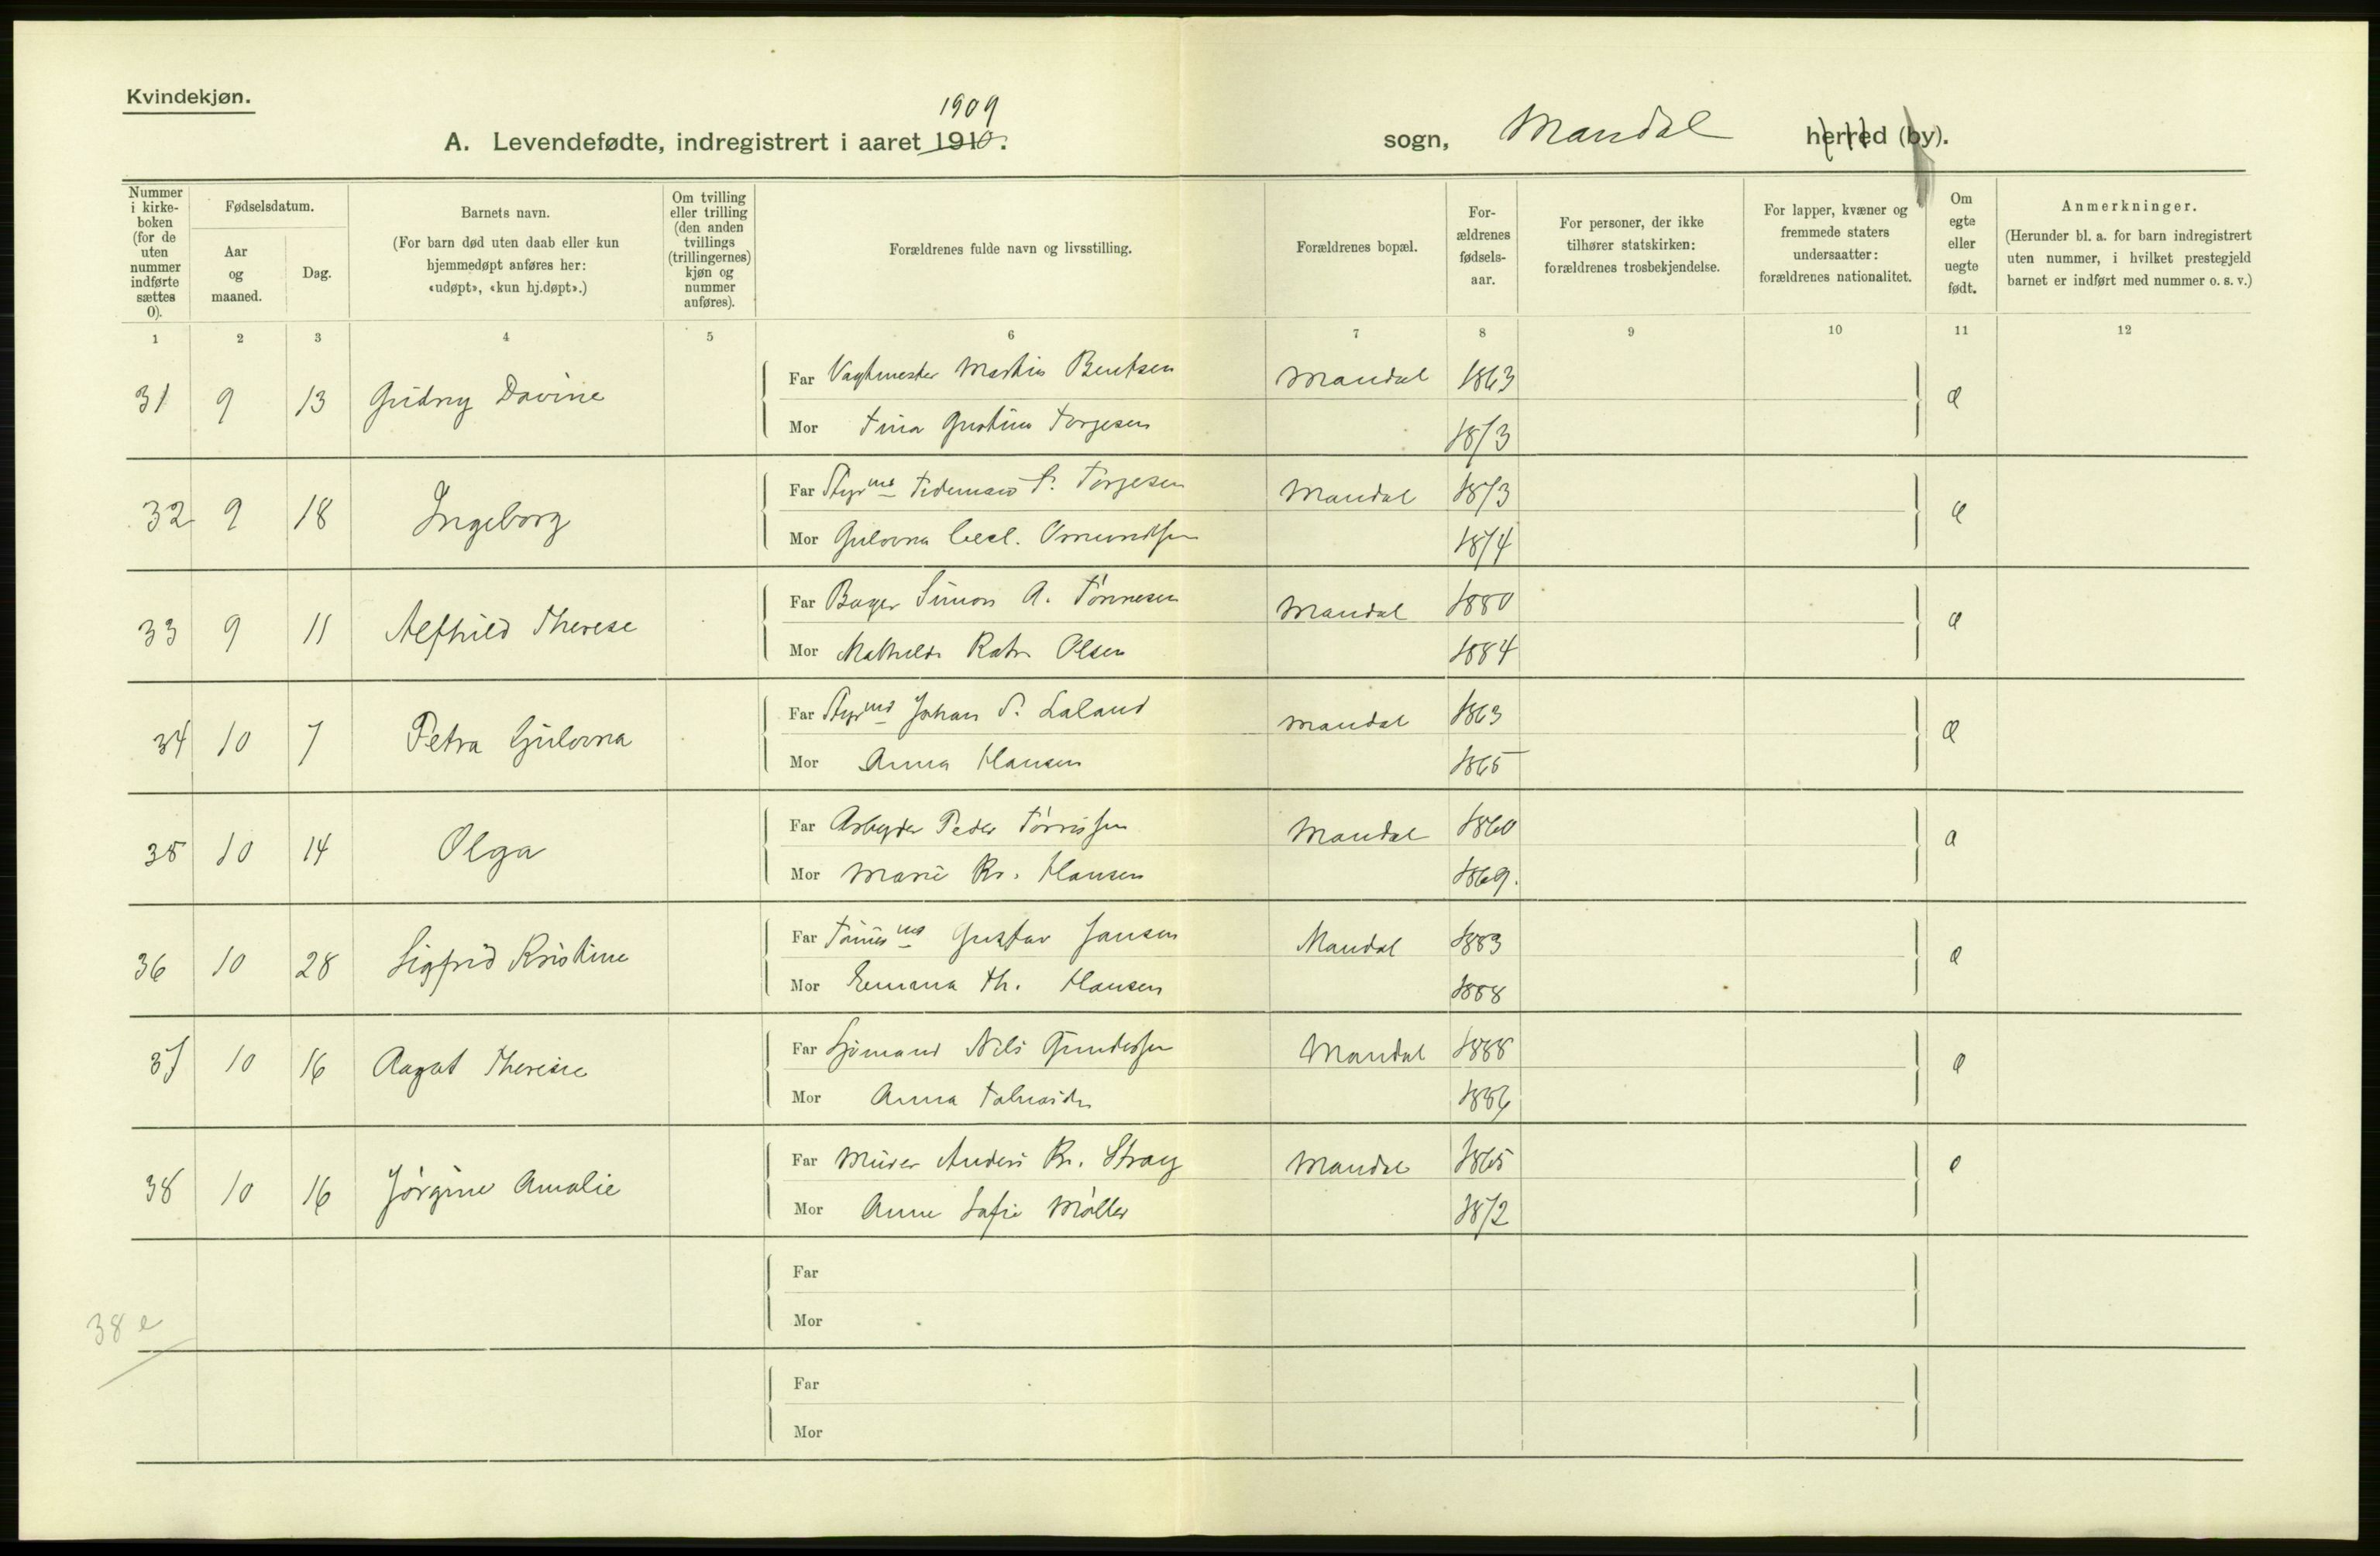 Kvindekjøn.
1909
A. Levendefødte, indregistrert i aaret 1910.
sogn, Mandal herred (by).
Nummer i kirke-boken (for de uten nummer indførte sættes 0).
Fødselsdatum.
Aar og maaned.
Dag.
Barnets navn.
(For barn død uten daab eller kun hjemmedøpt anføres her: «udøpt», «kun hj.døpt».)
Om tvilling eller trilling (den anden tvillings (trillingernes) kjøn og nummer anføres).
Forældrenes fulde navn og livsstilling.
Forældrenes bopæl.
For-ældrenes fødsels-aar.
For personer, der ikke tilhører statskirken: forældrenes trosbekjendelse.
For lapper, kvæner og fremmede staters undersaatter: forældrenes nationalitet.
Om egte eller uegte født.
Anmerkninger.
(Herunder bl. a. for barn indregistrert uten nummer, i hvilket prestegjeld barnet er indført med nummer o. s. v.)
1 2 3 4 5 6 7 8 9 10 11 12
Far Vagtmester Martin Bentsen Mandal 1863
31 9 13 Gudny Davine e
Mor Tina Gustine Torjesen 1873
Far Styrmd Tidemand T. Torjesen Mandal 1873
32 9 18 Ingeborg e
Mor Gulovna Cecl. Omundsen 1874
Far Bager Simon A. Tönnesen Mandal 1880
33 9 11 Alfhild Therese e
Mor Mathilde Katr. Olsen 1884
Far Styrmd Johan S. Laland Mandal 1863
34 10 7 Petra Gulovna e
Mor Anna Hansen 1865
Far Arbeyder Peder Törrissen Mandal 1860
35 10 14 Olga e
Mor Marie Kr. Hansen 1869.
Far Tömmermd Gustav Jansen Mandal 1883
36 10 28 Sigfrid Kristine e
Mor Emma Th. Hansen 1888
Far Sjömand Nils Gundersen Mandal 1888
37 10 16 Aagot Theresie e
Mor Anna 1886
Far Murer Anders Kr. Stray Mandal 1865
38 10 16 Jörgine Amalie e
Mor Anne Sofie Möller 1872
Far
38 e
Mor
Far
Mor